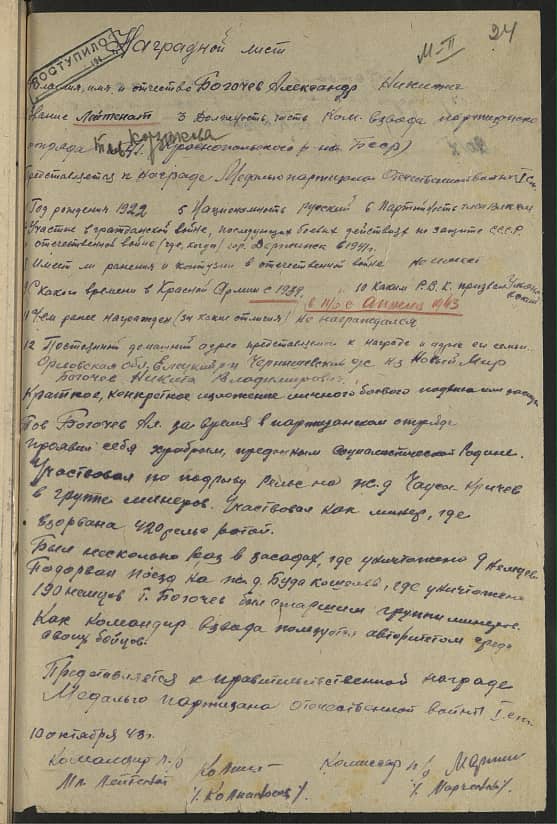 ПОСТУПИЛО
24
М-II
Наградной лист
Фамилия, имя и отчество Богачев Александр Никитич
звание Лейтенант 3 Должность, часть Ком. взвода партизанско
отряда (БССР)
Представляется к награде Медалью партизана Отечественной войны I ст.
Год рождения 1922 5 Национальность русский 6 Партийность член ВЛКСМ
Участие в гражданской войне, последующих боевых действиях по защите СССР.
отечественной войне (где, когда) гор. Держинск в 1941г.
Имеет ли ранения и контузии в отечественной войне не имеет
С какого времени в Красной Армии с 1939. 10 Каким Р.В.К. призван
в п/о с Апреля 1943
Чем ранее награжден (за какие отличия) не награждался
12 Постоянный домашний адрес представляемого к награде и адрес его семьи.
Орловская обл. Елецкий р-н Новый Мир
Богачев Никита Владимирович.
Краткое, конкретное изложение личного боевого подвига или заслуг
Тов Богачев Ал. за время в партизанском отряде
проявил себя храбрым, преданным социалистической Родине.
Участвовал по подрыву рельс на ж.д Чаусы-Кричев
в группе минеров. Участвовал как минер, где
взорвана 420 рельс ротой.
Был несколько раз в засадах, где уничтожено 9 немцев.
Подорвал поезд на ж.д. Буда Кошелево, где уничтожено
190 немцев Т. Богачев был старшим группы минеров.
Как командир взвода пользуется авторитетом среди
своих бойцов.
Представляется к правительственной награде
Медалью партизана Отечественной войны I ст.
10 октября 43г.
Командир п.о Комиссар п/о
Мл. Лейтенант